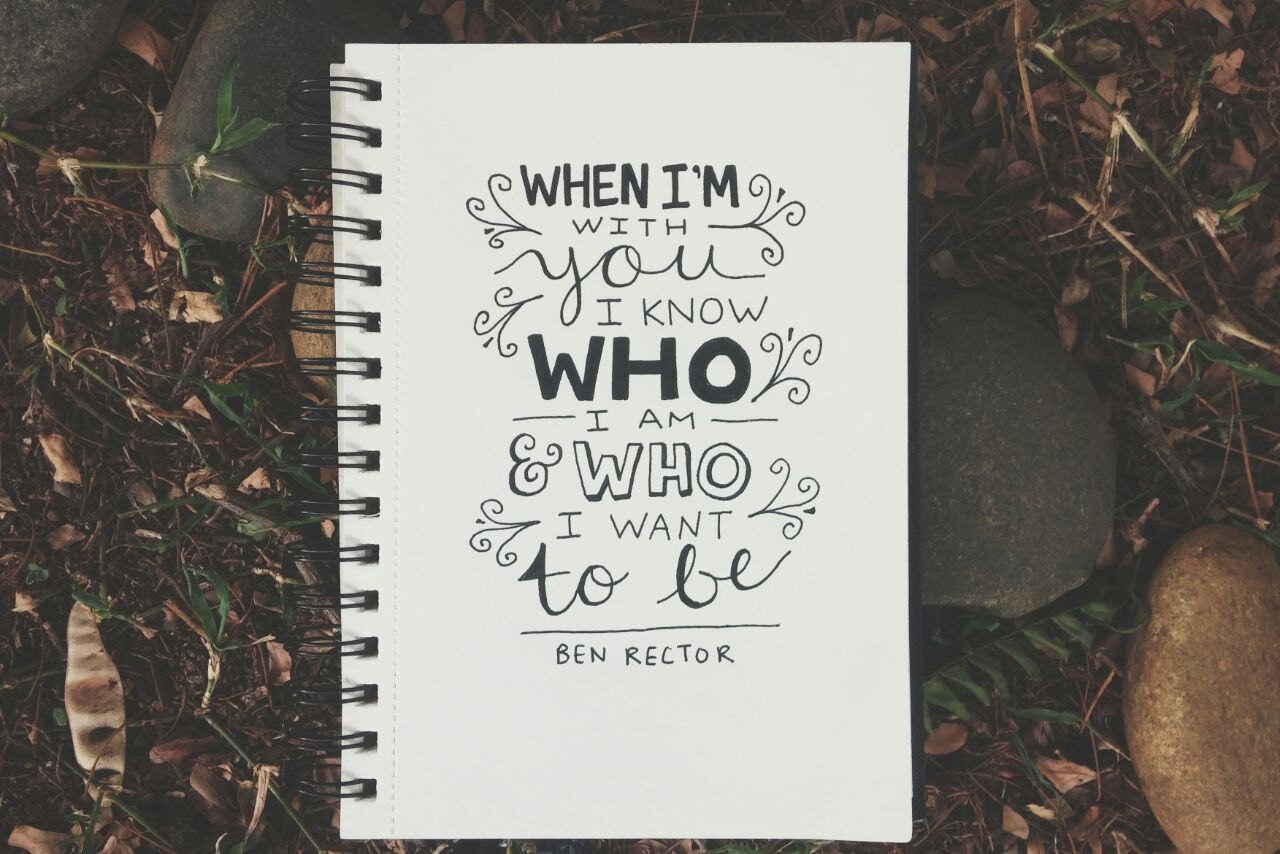 WHEN I'M
WITH
you
I KNOW
WHO
I AM
& WHO
I WANT
to be
BEN RECTOR